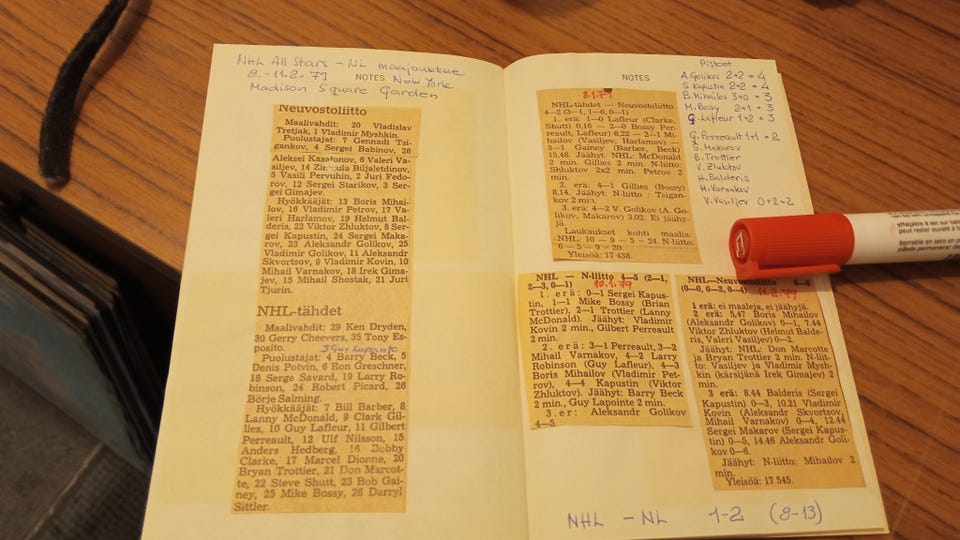 NHL All Stars - NL maajoukkue
8.-11.2.79 NOTES New York
Madison Square Garden
Neuvostoliitto
Maalivahdit: 20 Vladislav
Tretjak, 1 Vladimir Myshkin.
Puolustajat: 7 Gennadi Tsi-
gankov, 4 Sergei Babinov, 26
Aleksei Kasatonov, 6 Valeri Va-
siljev, 14 Zinetula Biljaletdinov,
5 Vasili Pervuhin, 2 Juri Fedo-
rov, 12 Sergei Starikov, 3 Ser-
gei Gimajev.
Hyökkääjät: 13 Boris Mihai-
lov, 16 Vladimir Petrov, 17 Va-
leri Harlamov, 19 Helmut Bal-
deris, 22 Viktor Zhluktov, 8 Ser-
gei Kapustin, 24 Sergei Maka-
rov, 23 Aleksandr Golikov, 25
Vladimir Golikov, 11 Aleksandr
Skvortsov, 9 Vladimir Kovin, 10
Mihail Varnakov, 18 Irek Gima-
jev, 15 Mihail Shostak, 21 Juri
Tjurin.
NHL-tähdet
Maalivahdit: 29 Ken Dryden,
30 Gerry Cheevers, 35 Tony Es-
posito.
Puolustajat: 4 Barry Beck, 5
Denis Potvin, 6 Ron Greschner,
18 Serge Savard, 19 Larry Ro-
binson, 24 Robert Picard, 26
Börje Salming.
Hyökkääjät: 7 Bill Barber, 8
Lanny McDonald, 9 Clark Gil-
lies, 10 Guy Lafleur, 11 Gilbert
Perreault, 12 Ulf Nilsson, 15
Anders Hedberg, 16 Bobby
Clarke, 17 Marcel Dionne, 20
Bryan Trottier, 21 Don Marcot-
te, 22 Steve Shutt, 23 Bob Gai-
ney, 25 Mike Bossy, 26 Darryl
Sittler.
NOTES
8.1.79
NHL-tähdet — Neuvostoliitto
4—2 (3—1, 1—0, 0—1)
1. erä: 1—0 Lafleur (Clarke,
Shutt) 0,16 — 2—0 Bossy Per-
reault, Lafleur) 6,22 — 2—1 Mi-
hailov (Vasiljev, Harlamov) —
3—1 Gainey (Barber, Beck)
15,48. Jäähyt: NHL: McDonald
2 min. Gillies 2 min. N-liitto:
Shluktov 2x2 min. Petrov 2
min.
2. erä: 4—1 Gillies (Bossy)
8,14. Jäähyt: N-liitto: Tsigan-
kov 2 min.
3. erä: 4—2 V. Golikov (A. Go-
likov, Makarov) 3.02. Ei jäähy-
jä.
Laukaukset kohti maalia:
NHL: 10 — 9 — 5 — 24. N-liitto:
6 — 5 — 9 — 20.
Yleisöä: 17 438.
Pisteet
A. Golikov 2+2 = 4
S. Kapustin 2+2 = 4
B. Mihailov 3+0 = 3
M. Bossy 2+1 = 3
G. Lafleur 1+2 = 3
G. Perreault 1+1 = 2
S. Makarov
B. Trottier
V. Zluktov
H. Balderis
M. Varnakov
V. Vasiljev 0+2=2
NHL — N-liitto 4—5 (2—1,
2—3, 0—1) 10.1.79
1. erä: 0—1 Sergei Kapus-
tin, 1—1 Mike Bossy (Brian
Trottier), 2—1 Trottier (Lanny
McDonald). Jäähyt: Vladimir
Kovin 2 min., Gilbert Perreault
2 min.
2. erä: 3—1 Perreault, 3—2
Mihail Varnakov, 4—2 Larry
Robinson (Guy Lafleur), 4—3
Boris Mihailov (Vladimir Pet-
rov), 4—4 Kapustin (Viktor
Zhluktov). Jäähyt: Barry Beck
2 min., Guy Lapointe 2 min.
3. er: Aleksandr Golikov
4—5.
NHL—Neuvostoliitto 0—6
(0—0, 0—2, 0—4) 11.2.79
1 erä: ei maaleja, ei jäähyjä.
2 erä: 5,47 Boris Mihailov
(Aleksandr Golikov) 0—1, 7.44
Viktor Zhluktov (Helmut Balde-
ris, Valeri Vasiljev) 0—2.
Jäähyt: NHL: Don Marcotte
ja Bryan Trottier 2 min. N-liit-
to: Vasiljev ja Vladimir Mysh-
kin (kärsijänä Irek Gimajev) 2
min.
3 erä: 8.44 Balderis (Sergei
Kapustin) 0—3, 10.21 Vladimir
Kovin (Aleksandr Skvortsov,
Mihail Varnakov) 0—4, 12.44
Sergei Makarov (Sergei Kapus-
tin) 0—5, 14.46 Aleksandr Goli-
kov 0—6.
Jäähyt: N-liitto: Mihailov 2
min.
Yleisöä: 17 545.
NHL - NL 1-2 (8-13)